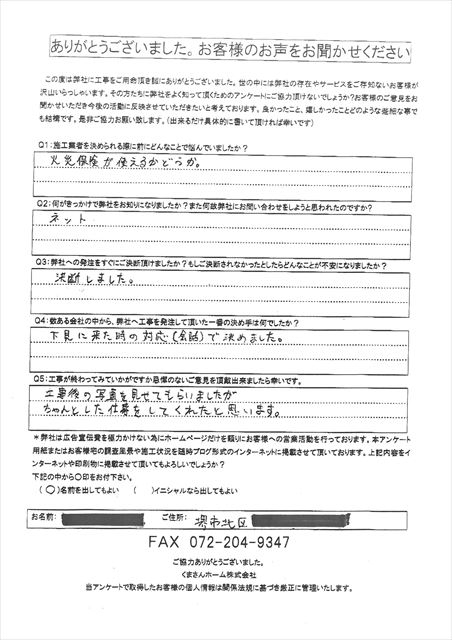 ありがとうございました。お客様のお声をお聞かせください
この度は弊社に工事をご用命頂き誠にありがとうございました。世の中には弊社の存在やサービスをご存知ないお客様が
沢山いらっしゃいます。その方たちに弊社をよく知って頂くためのアンケートにご協力頂けないでしょうか?お客様のご意見をお
聞かせいただき今後の活動に反映させていただきたいと考えております。良かったこと、嬉しかったことどのような些細な事で
も結構です。是非ご協力お願い致します。(出来るだけ具体的に書いて頂ければ幸いです)
Q1:施工業者を決められる際に前にどんなことで悩んでいましたか?
火災保険が使えるかどうか。
Q2:何がきっかけで弊社をお知りになりましたか?また何故弊社にお問い合わせをしようと思われたのですか?
ネット
Q3:弊社への発注をすぐにご決断頂けましたか?もしご決断されなかったとしたらどんなことが不安になりましたか?
決断しました。
Q4:数ある会社の中から、弊社へ工事を発注して頂いた一番の決め手は何でしたか?
下見に来た時の対応(会話)で決めました。
Q5:工事が終わってみていかがですか忌憚のないご意見を頂戴出来ましたら幸いです。
工事後の写真を見せてもらいましたが
ちゃんとした仕事をしてくれたと思います。
*弊社は広告宣伝費を極力かけない為にホームページだけを頼りにお客様への営業活動を行っております。本アンケート
用紙またはお客様宅の調査風景や施工状況を随時ブログ形式のインターネットに掲載させて頂いております。上記内容をイ
ンターネットや印刷物に掲載させて頂いてもよろしいでしょうか?
下記の中から○印をお付下さい。
(○)名前を出してもよい ( )イニシャルなら出してもよい
お名前: ご住所: 堺市北区
FAX 072-204-9347
ご協力ありがとうございました。
くまさんホーム株式会社
当アンケートで取得したお客様の個人情報は関係法規に基づき厳正に管理いたします。